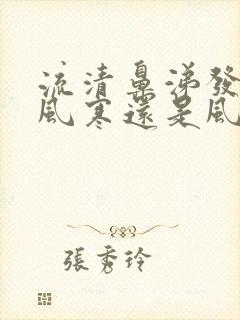 流清鼻涕發
風寒還是風
張秀玲